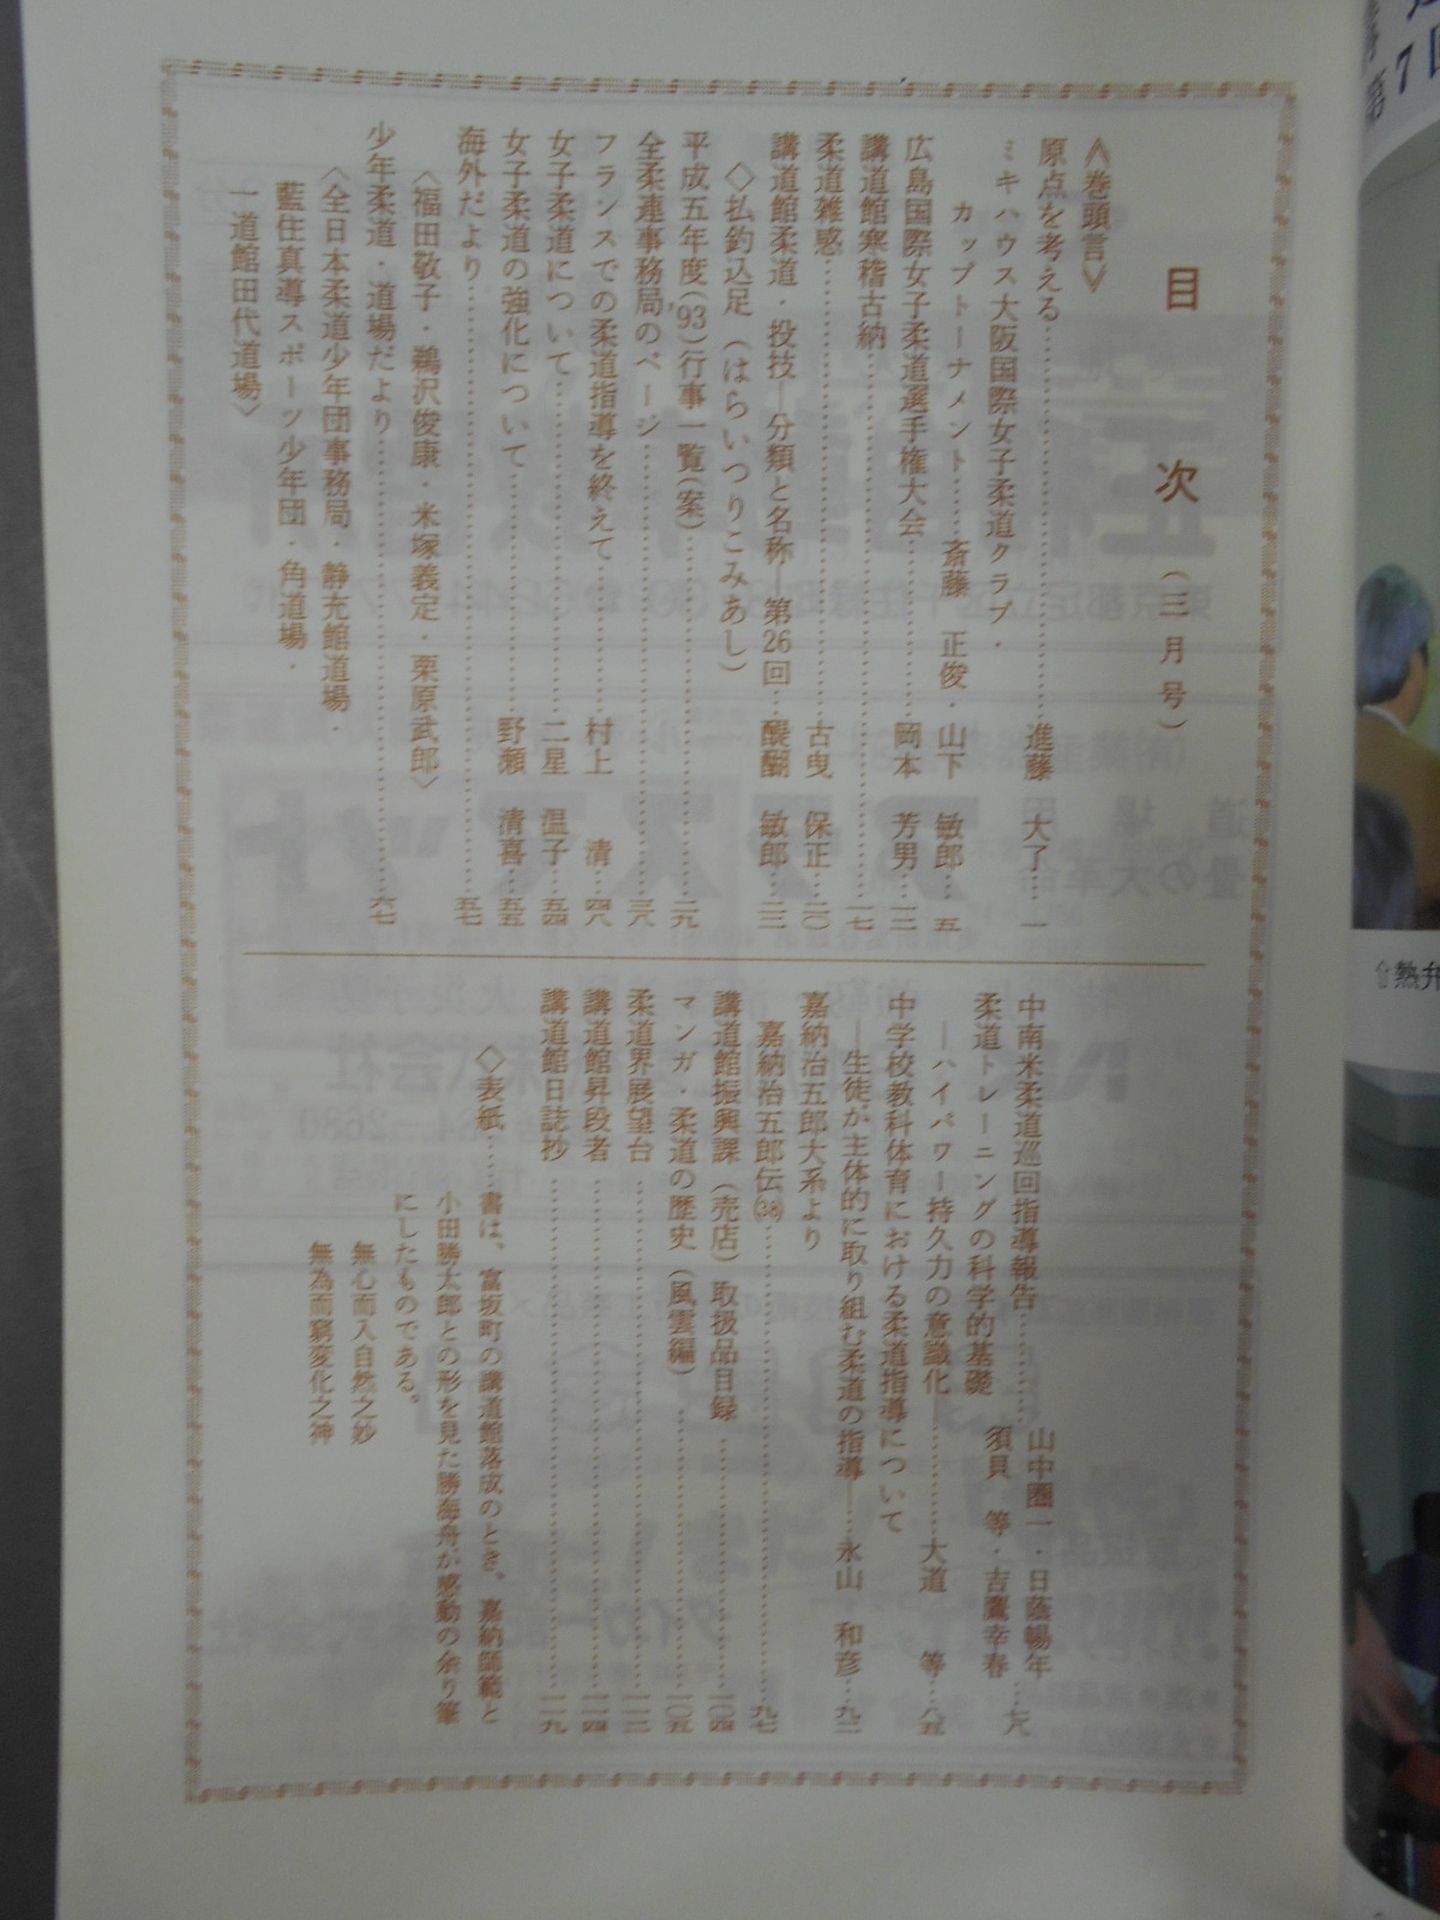 目次（三月号）
≪巻頭言≫
原点を考える……進藤　大了…一
ミキハウス大阪国際女子柔道クラブ・
カップトーナメント……斎藤　正俊・山下　敏郎…五
広島国際女子柔道選手権大会……岡本　芳男…一二
講道館寒稽古納……一七
柔道雑感……古曳　保正…二〇
講道館柔道・投技―分類と名称―第26回…醍醐　敏郎…二三
◇払釣込足（はらいつりこみあし）
平成五年度('93)行事一覧(案)……二九
全柔連事務局のページ……三六
フランスでの柔道指導を終えて……村上　清…四八
女子柔道について……二星　温子…五四
女子柔道の強化について……野瀬　清喜…五五
海外だより……五七
〈福田敬子・鵜沢俊康・米塚義定・栗原武郎〉
少年柔道・道場だより……六七
〈全日本柔道少年団事務局・静充館道場・
藍住真導スポーツ少年団・角道場・
一道館田代道場〉
中南米柔道巡回指導報告……山中圏一・日蔭暢年…七八
柔道トレーニングの科学的基礎　須貝　等・吉鷹幸春
―ハイパワー持久力の意識化―……大道　等…八五
中学校教科体育における柔道指導について
―生徒が主体的に取り組む柔道の指導―……永山　和彦…九二
嘉納治五郎大系より
嘉納治五郎伝(38)……九七
講道館振興課（売店）取扱品目録……一〇四
マンガ・柔道の歴史（風雲編）……一〇五
柔道界展望台……一一二
講道館昇段者……一一四
講道館日誌抄……一一九
◇表紙……書は、富坂町の講道館落成のとき、嘉納師範と
小田勝太郎との形を見た勝海舟が感動の余り筆
にしたものである。
無心而入自然之妙
無為而窮変化之神
⇧熱弁